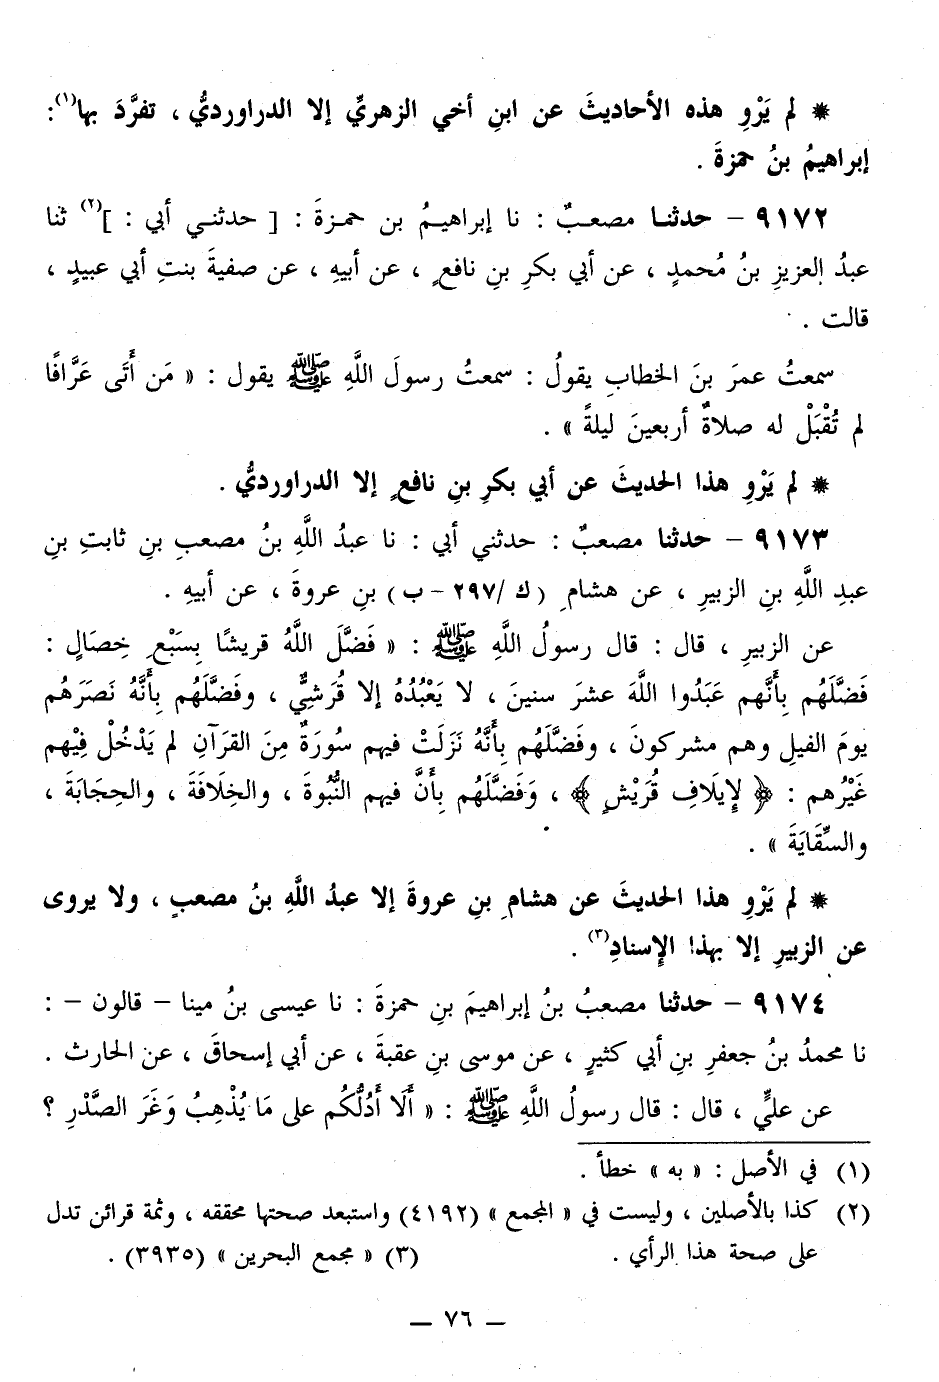 * لم يَرْوِ هذه الأحاديثَ عن ابنِ أخي الزهريِّ إلا الدراورديُّ ، تفرَّدَ بها(١) :
إبراهيمُ بنُ حمزةَ .
٩١٧٢ – حدثنا مصعبٌ : نا إبراهيمُ بن حمزةَ : [ حدثني أبي : ](٢) ثنا
عبدُ العزيزِ بنُ مُحمدٍ ، عن أبي بكرِ بنِ نافعٍ ، عن أبيهِ ، عن صفيةَ بنتِ أبي عبيدٍ ،
قالت .
سمعتُ عمرَ بنَ الخطابِ يقولُ : سمعتُ رسولَ اللَّهِ ﷺ يقول : « مَن أَتَى عَرَّافًا
لم تُقْبَلْ له صلاةٌ أربعينَ ليلةً » .
* لم يَرْوِ هذا الحديثَ عن أبي بكرِ بنِ نافعٍ إلا الدراورديُّ .
٩١٧٣ – حدثنا مصعبٌ : حدثني أبي : نا عبدُ اللَّهِ بنُ مصعبِ بنِ ثابتِ بنِ
عبدِ اللَّهِ بنِ الزبيرِ ، عن هشامِ ( ك /٢٩٧ – ب ) بنِ عروةَ ، عن أبيهِ .
عن الزبيرِ ، قال : قال رسولُ اللَّهِ ﷺ : « فَضَّلَ اللَّهُ قريشًا بِسَبْعِ خِصَالٍ :
فَضَّلَهُم بِأَنَّهم عَبَدُوا اللَّهَ عشرَ سنينَ ، لا يَعْبُدُهُ إلا قُرَشِيٌّ ، وفَضَّلَهُم بِأَنَّهُ نَصَرَهُم
يومَ الفيلِ وهم مشركونَ ، وفَضَّلَهُم بِأَنَّهُ نَزَلَتْ فيهم سُورَةٌ مِنَ القرَآنِ لم يَدْخُلْ فِيْهم
غَيْرُهم : ﴿ لِإيلَافِ قُرَيْشٍ ﴾ ، وَفَضَّلَهُم بِأَنَّ فيهم النُّبُوةَ ، والخِلَافَةَ ، والحِجَابَةَ ،
والسِّقَايَةَ » .
* لم يَرْوِ هذا الحديثَ عن هشامِ بنِ عروةَ إلا عبدُ اللَّهِ بنُ مصعبٍ ، ولا يروى
عن الزبيرِ إلا بهذا الإسنادِ(٣) .
٩١٧٤ – حدثنا مصعبُ بنُ إبراهيمَ بنِ حمزةَ : نا عيسى بنُ مينا – قالون – :
نا محمدُ بنُ جعفرِ بنِ أبي كثيرٍ ، عن موسى بنِ عقبةَ ، عن أبي إسحاقَ ، عن الحارث .
عن عليٍّ ، قال : قال رسولُ اللَّهِ ﷺ : « أَلَا أَدُلُّكُم على مَا يُذْهِبُ وَغَرَ الصَّدْرِ ؟
(١) في الأصل : « به » خطأ .
(٢) كذا بالأصلين ، وليست في « المجمع » (٤١٩٢) واستبعد صحتها محققه ، وثمة قرائن تدل
على صحة هذا الرأي . (٣) « مجمع البحرين » (٣٩٣٥) .
— ٧٦ —